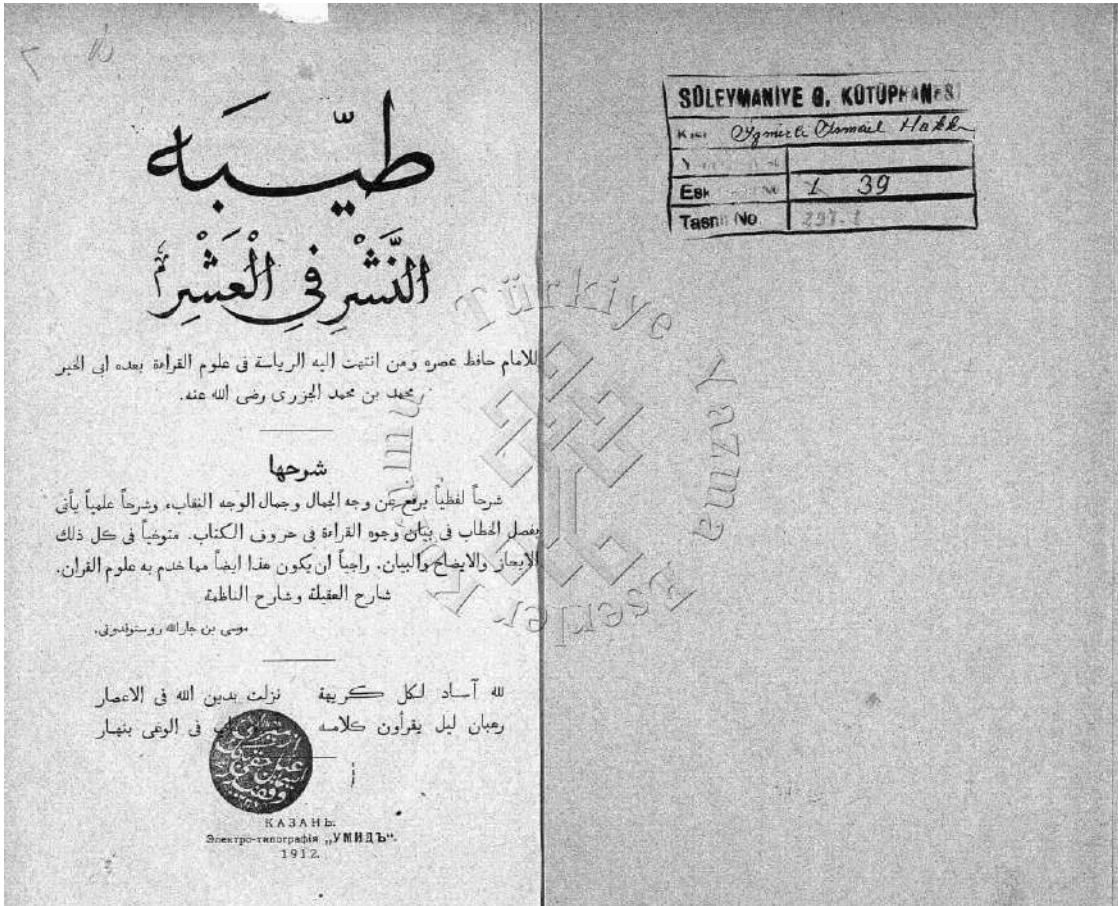 طيّبه
النَّشْرِ فِي الْعَشْرِ
للامام حافظ عصره ومن انتهت اليه الرياسة فى علوم القراءة بعده ابى الخير
محمد بن محمد الجزرى رضى الله عنه.
شرحها
شرحاً لفظياً يرفع عن وجه الجمال وجمال الوجه النقاب، وشرحاً علمياً يأتى
بفصل الخطاب فى بيان وجوه القراءة فى حروف الكتاب. متوخياً فى كل ذلك
الايجاز والايضاح والبيان. راجياً ان يكون هذا ايضاً مما خدم به علوم القران.
شارح العقيلة وشارح الناظمة
موسى بن جارالله روستوفدونى.
لله آساد لكل كريهة نزلت بدين الله فى الاعصار
رهبان ليل يقرأون كلامه فى الوغى بنهار
КАЗАНЬ.
Электро-типографія „УМИДЪ“.
1912.
SÜLEYMANİYE G. KÜTÜPHANESİ
İzmirli İsmail Hakkı
Esk No 1 39
Tasnif No 297.1
Türkiye Yazma Eserler Kurumu